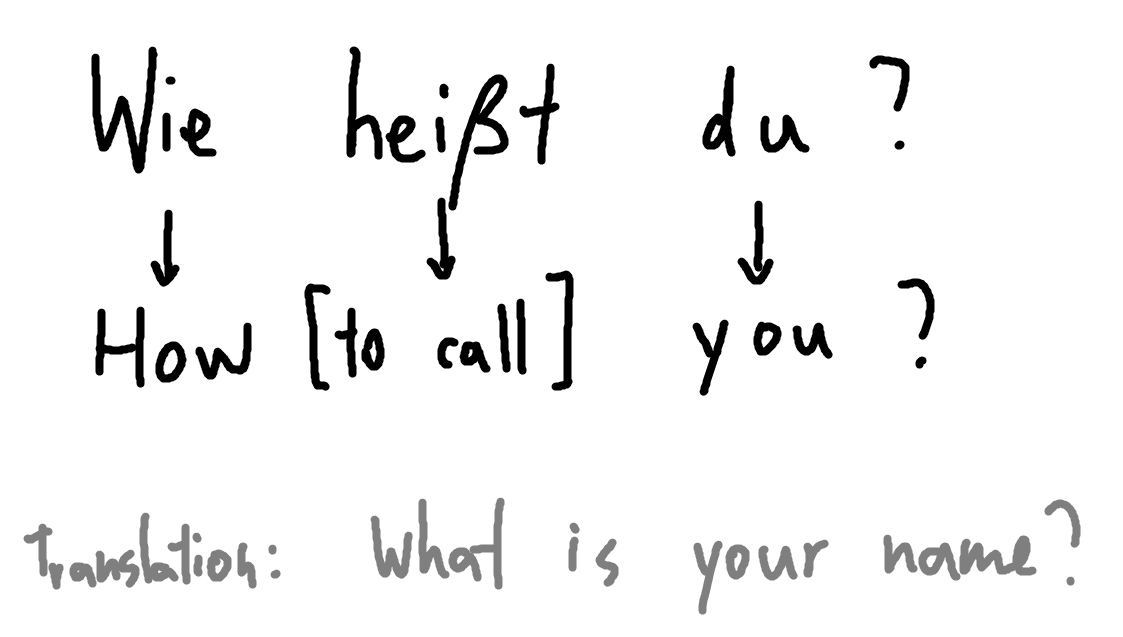 Wie heißt du ?
How [to call] you ?
translation: What is your name?